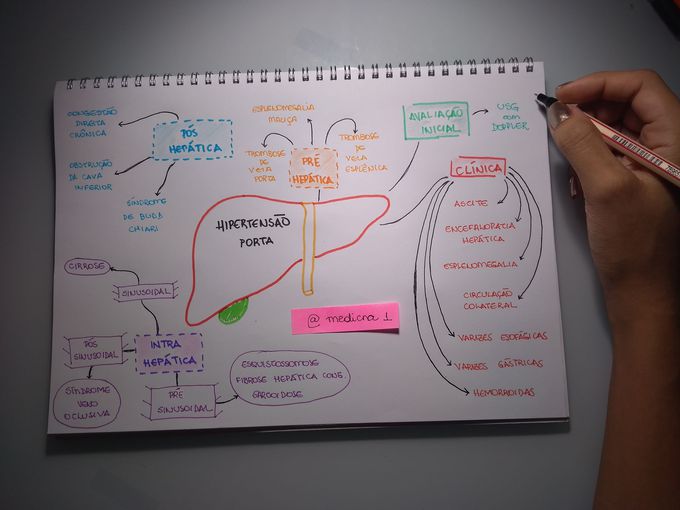 CONGESTÃO
DIREITA
CRÔNICA
OBSTRUÇÃO
DA CAVA
INFERIOR
SÍNDROME
DE BUDD
CHIARI
PÓS
HEPÁTICA
ESPLENOMEGALIA
MACIÇA
TROMBOSE
DE
VEIA
PORTA
PRÉ
HEPÁTICA
TROMBOSE
DE
VEIA
ESPLÊNICA
AVALIAÇÃO
INICIAL
USG
com
DOPPLER
CLÍNICA
ASCITE
ENCEFALOPATIA
HEPÁTICA
ESPLENOMEGALIA
CIRCULAÇÃO
COLATERAL
VARIZES ESOFÁGICAS
VARIZES GÁSTRICAS
HEMORROIDAS
HIPERTENSÃO
PORTA
@medicna 1
CIRROSE
SINUSOIDAL
PÓS
SINUSOIDAL
INTRA
HEPÁTICA
SÍNDROME
VENO
OCLUSIVA
PRÉ
SINUSOIDAL
ESQUISTOSSOMOSE
FIBROSE HEPÁTICA CONG.
SARCOIDOSE